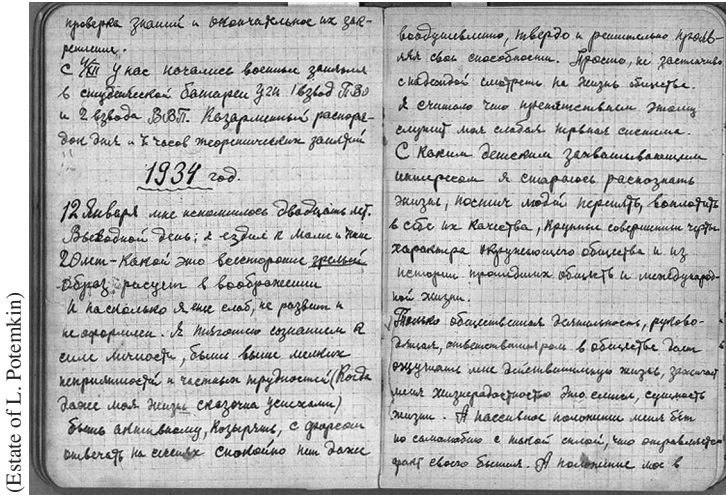 проверка знаний и окончательное их зак-
репление.
С у нас начались военные занятия
в студенческой батареи УГИ 1 взвод ПВО
и 2 взвода ВВП. Казарменный распоря-
док дня и часов теоретических занятий
1934 год.
12 Января мне исполнилось двадцать лет.
Выходной день; я ездил к Мали и
20 лет - какой это всесторонне зрелый
образ рисует в воображении
И насколько я еще слаб, не развит и
не оформлен. Я тяготею сознанием к
силе личности, быть выше мелких
неприятностей и частных трудностей (Когда
даже моя жизнь сказочна успехами)
быть активному, козырять, с форсом
отвечать на сессиях спокойно нет даже
воодушевленно, твердо и решительно прояв-
ляя свои способности. Просто, не застенчиво
с надеждой смотреть на жизнь общества.
Я считаю что препятствием этому
служит моя слабая нервная система.
С каким детским захватывающим
интересом я стараюсь распознать
жизнь, постичь людей перенять, воплотить
в себе их качества, крупные совершенные черты
характера окружающего общества и из
истории прошедших обществ и международ-
ной жизни.
Только общественная деятельность, руково-
дящая, ответственная роль в обществе дает
ощущать мне действительную жизнь, зажигает
меня жизнерадостностью это смысл, сущность
жизни. А пассивное положение меня бьет
по самолюбию с такой силой, что отравляется
факт своего бытия. А положение мое в
(Estate of L. Potemkin)